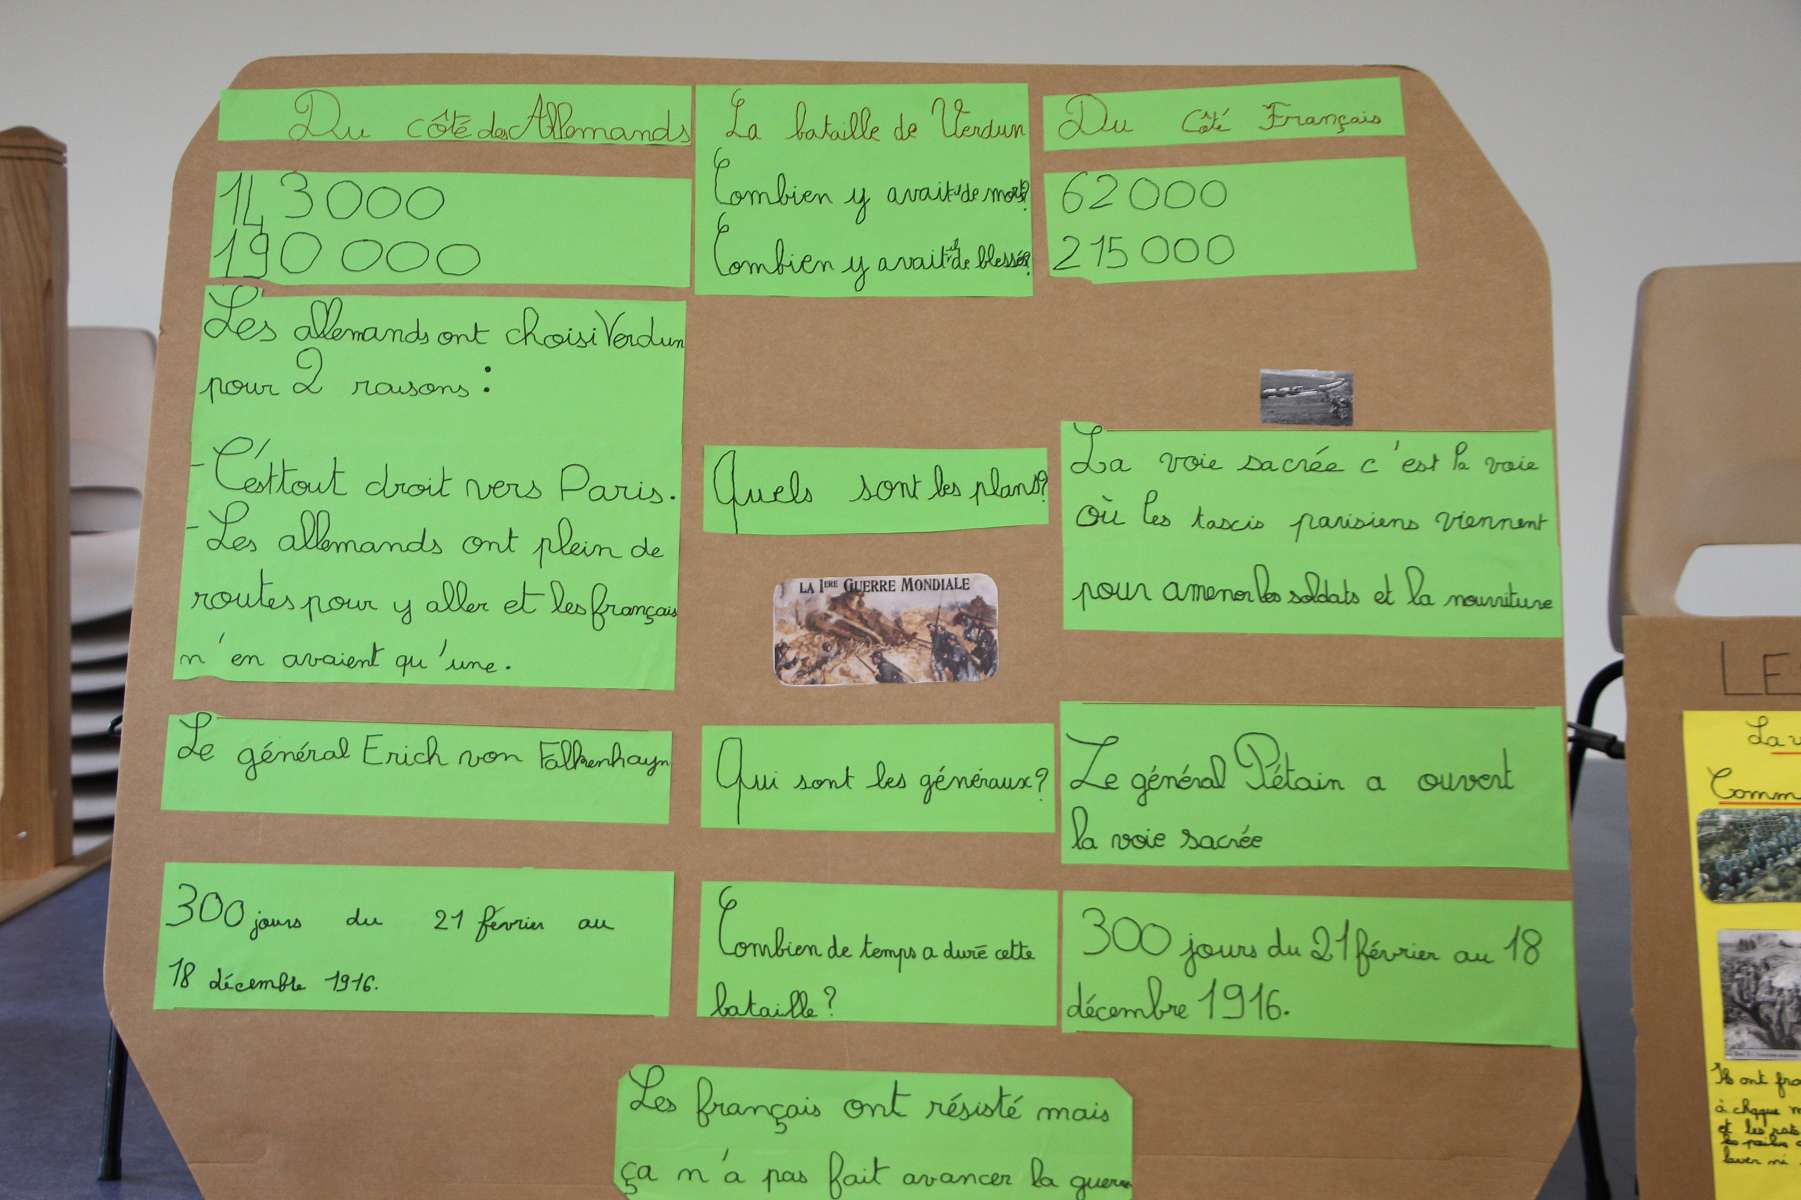 Du côté des Allemands
La bataille de Verdun
Du Côté Français
143000
Combien y avait-il de mort?
62000
190 000
Combien y avait-il de blessés?
215000
Les allemands ont choisi Verdun
pour 2 raisons :
- C'est tout droit vers Paris.
- Les allemands ont plein de
routes pour y aller et les français
n'en avaient qu'une.
Quels sont les plans?
LA 1ERE GUERRE MONDIALE
La voie sacrée c'est la voie
où les taxis parisiens viennent
pour amener les soldats et la nourriture
Le général Erich von Falkenhayn
Qui sont les généraux?
Le général Pétain a ouvert
la voie sacrée
300 jours du 21 février au
18 décembre 1916.
Combien de temps a duré cette
bataille?
300 jours du 21 février au 18
décembre 1916.
Les français ont résisté mais
ça n'a pas fait avancer la guerre
LES
La
Comm
Ils ont
à chaque
et les